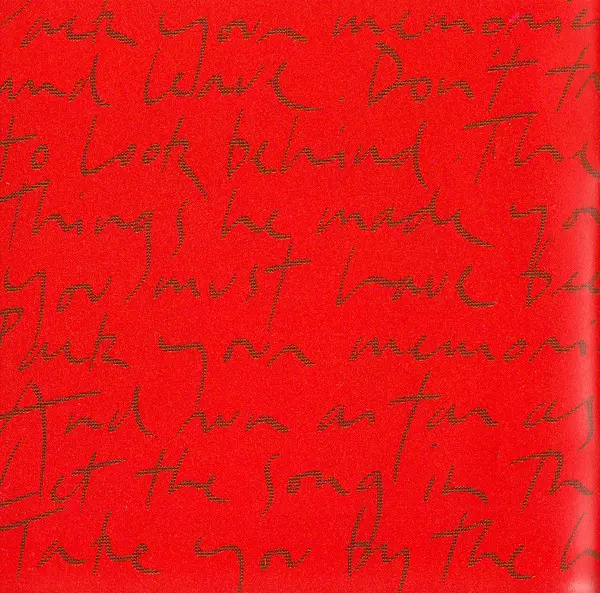 your memorie
and leave. Don't tr
to look behind. The
Things he made yo
you must have bee
Pack your memori
And run as far as
Let the song in th
Take you by the h